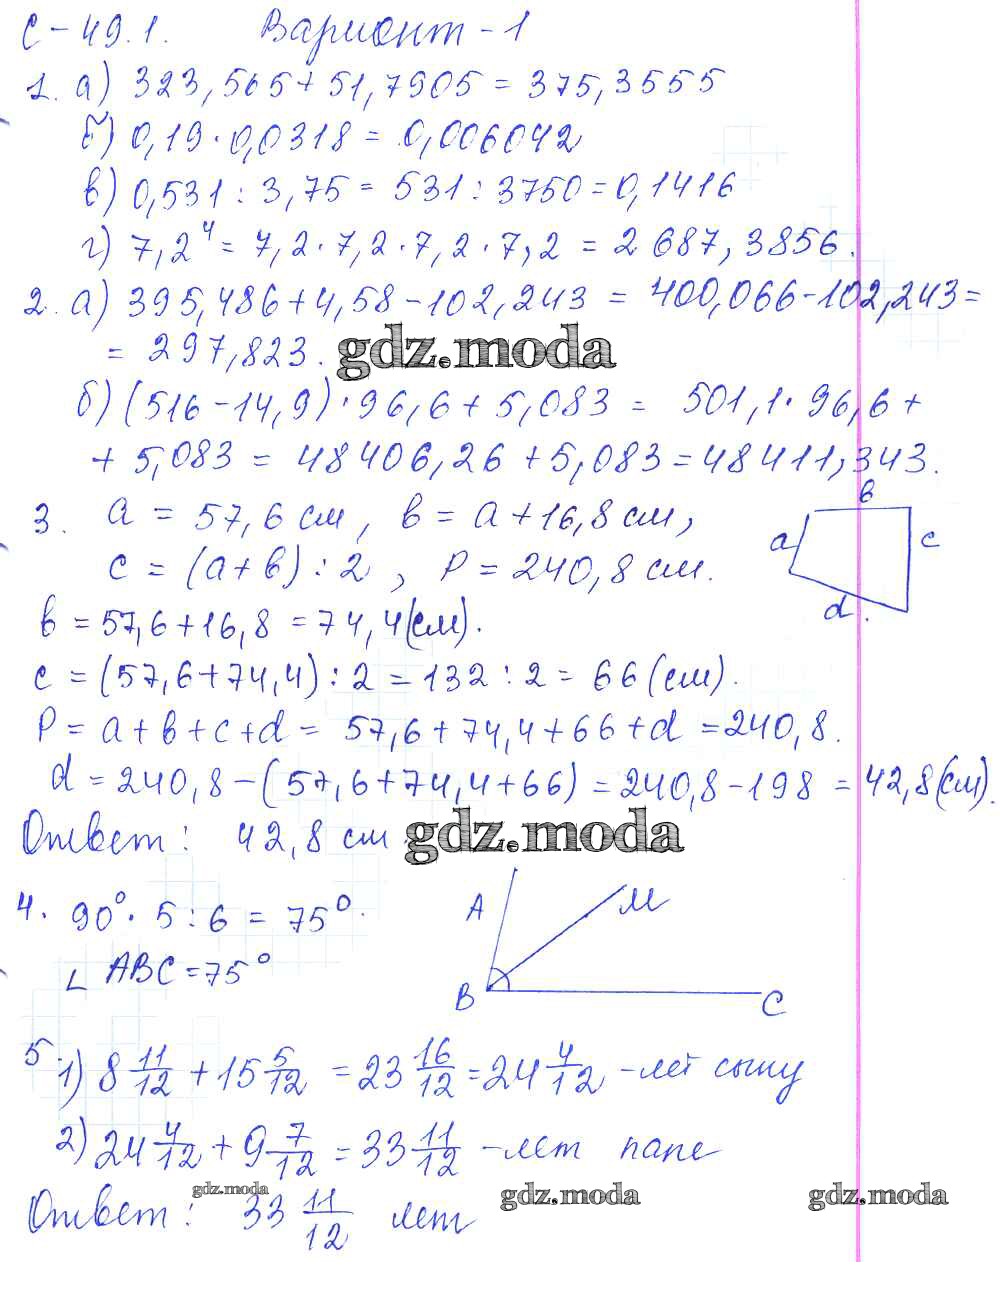 С-49.1. Вариант-1
1. а) 323,565+51,7905=375,3555
б) 0,19·0,0318=0,006042
в) 0,531:3,75=531:3750=0,1416
г) 7,2⁴=7,2·7,2·7,2·7,2=2687,3856.
2. а) 395,486+4,58-102,243=400,066-102,243=
=297,823.
gdz.moda
б) (516-14,9)·96,6+5,083=501,1·96,6+
+5,083=48406,26+5,083=48411,343.
3. a=57,6 см, в=a+16,8 см,
c=(a+в):2, P=240,8 см.
a в c d.
в=57,6+16,8=74,4(см).
c=(57,6+74,4):2=132:2=66(см).
P=a+в+c+d=57,6+74,4+66+d=240,8.
d=240,8-(57,6+74,4+66)=240,8-198=42,8(см).
Ответ: 42,8 см
gdz.moda
4. 90°·5:6=75°.
∠ABC=75°
A M B C
5 1) 8 11/12+15 5/12=23 16/12=24 4/12-лет сыну
2) 24 4/12+9 7/12=33 11/12-лет папе
gdz.moda gdz.moda gdz.moda
Ответ: 33 11/12 лет